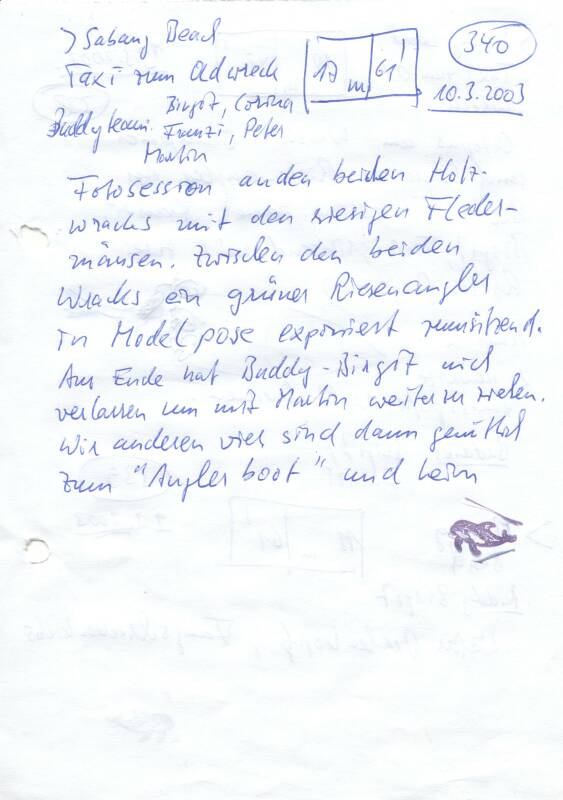 > Sabang Beach
Taxi zum Oldwreck
17 m 61'
340
10.3.2003
Birgit, Corina
Buddyteam: Franzi, Peter
Martin
Fotosession an den beiden Holz-
wracks mit den riesigen Fleder-
mäusen. Zwischen den beiden
Wracks ein grüner Riesenangler
in Modelpose exponiert rumsitzend.
Am Ende hat Buddy-Birgit mich
verlassen um mit Martin weiter zu
Wir anderen vier sind dann gemütlich
zum "Anglerboot" und heim